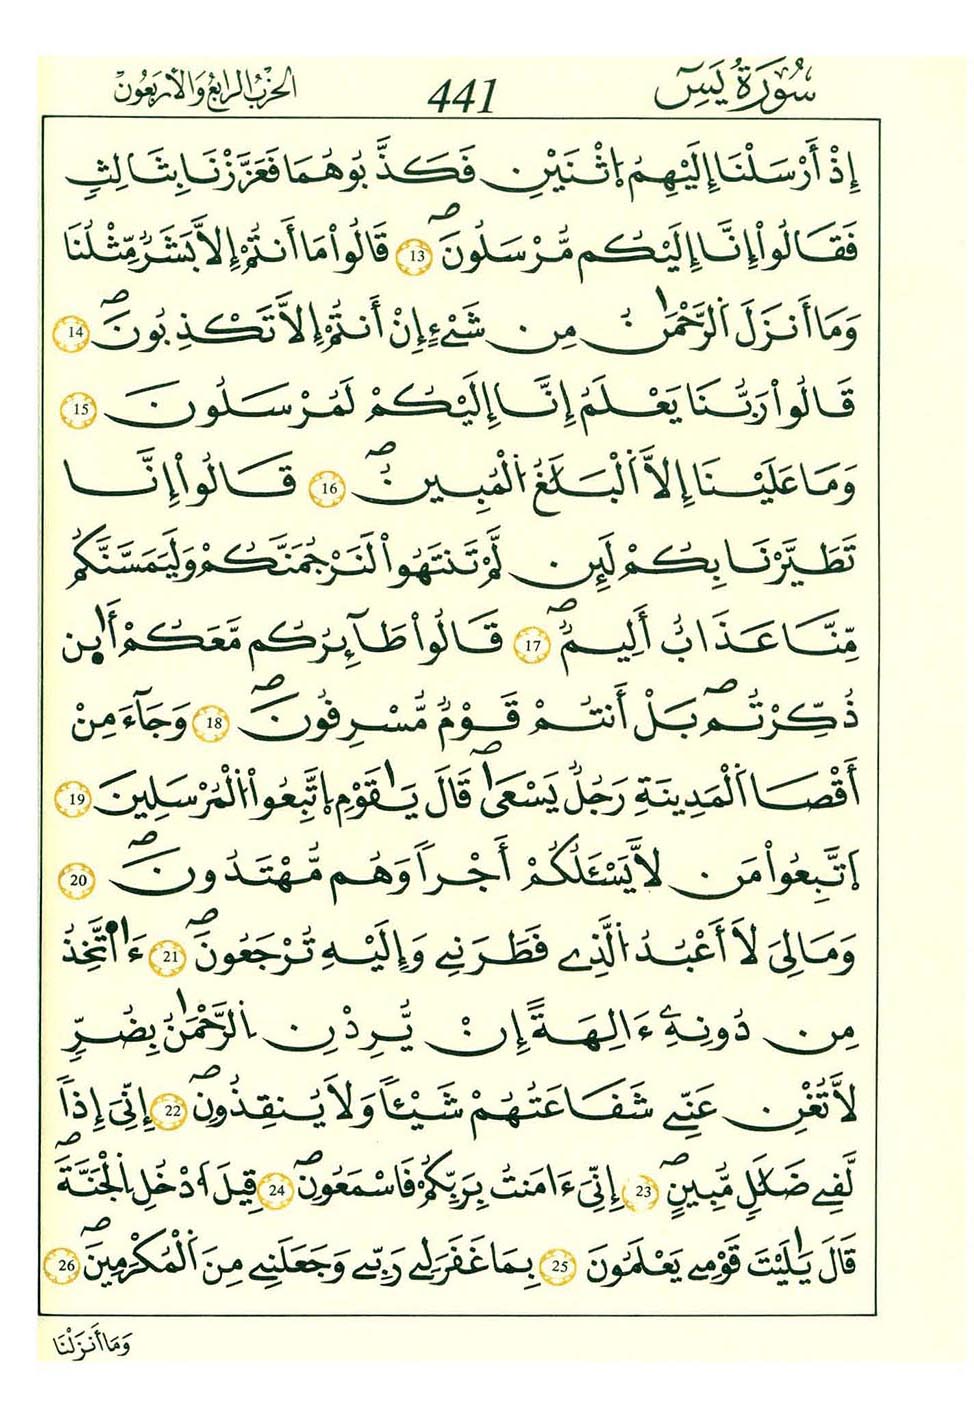 سُورَةُ يَسٓ
441
الحِزْبُ الرَّابِعُ وَالْأَرْبَعُونَ
إِذْ أَرْسَلْنَا إِلَيْهِمُ اِثْنَيْنِ فَكَذَّبُوهُمَا فَعَزَّزْنَا بِثَالِثٍ
فَقَالُواْ إِنَّا إِلَيْكُم مُّرْسَلُونَ 13 قَالُواْ مَا أَنتُمْ إِلَّا بَشَرٌ مِّثْلُنَا
وَمَا أَنزَلَ اَلرَّحْمَٰنُ مِن شَيْءٍ إِنْ أَنتُمْ إِلَّا تَكْذِبُونَ 14
قَالُواْ رَبُّنَا يَعْلَمُ إِنَّا إِلَيْكُمْ لَمُرْسَلُونَ 15
وَمَا عَلَيْنَا إِلَّا اَلْبَلَٰغُ اُلْمُبِينُ 16 قَالُواْ إِنَّا
تَطَيَّرْنَا بِكُمْ لَئِن لَّمْ تَنتَهُواْ لَنَرْجُمَنَّكُمْ وَلَيَمَسَّنَّكُم
مِّنَّا عَذَابٌ أَلِيمٌ 17 قَالُواْ طَآئِرُكُم مَّعَكُمْ أَٰىِٕن
ذُكِّرْتُم بَلْ أَنتُمْ قَوْمٌ مُّسْرِفُونَ 18 وَجَآءَ مِنْ
أَقْصَا اَلْمَدِينَةِ رَجُلٌ يَسْعَىٰ قَالَ يَٰقَوْمِ اِتَّبِعُواْ اُلْمُرْسَلِينَ 19
اِتَّبِعُواْ مَن لَّا يَسْـَٔلُكُمْ أَجْراً وَهُم مُّهْتَدُونَ 20
وَمَالِيَ لَا أَعْبُدُ اُلَّذِے فَطَرَنِے وَإِلَيْهِ تُرْجَعُونَ 21 ءَاٰ۬تَّخِذُ
مِن دُونِهِۦ ءَالِهَةً إِنْ يُّرِدْنِ اِلرَّحْمَٰنُ بِضُرٍّ
لَّا تُغْنِ عَنِّے شَفَاعَتُهُمْ شَيْـٔاً وَلَا يُنقِذُونِ 22 إِنِّيَ إِذاً
لَّفِے ضَلَٰلٍ مُّبِينٍ 23 إِنِّيَ ءَامَنتُ بِرَبِّكُمْ فَاسْمَعُونِ 24 قِيلَ اَ۟دْخُلِ اِلْجَنَّةَ
قَالَ يَٰلَيْتَ قَوْمِے يَعْلَمُونَ 25 بِمَا غَفَرَ لِے رَبِّے وَجَعَلَنِے مِنَ اَلْمُكْرَمِينَ 26
وَمَا أَنزَلْنَا